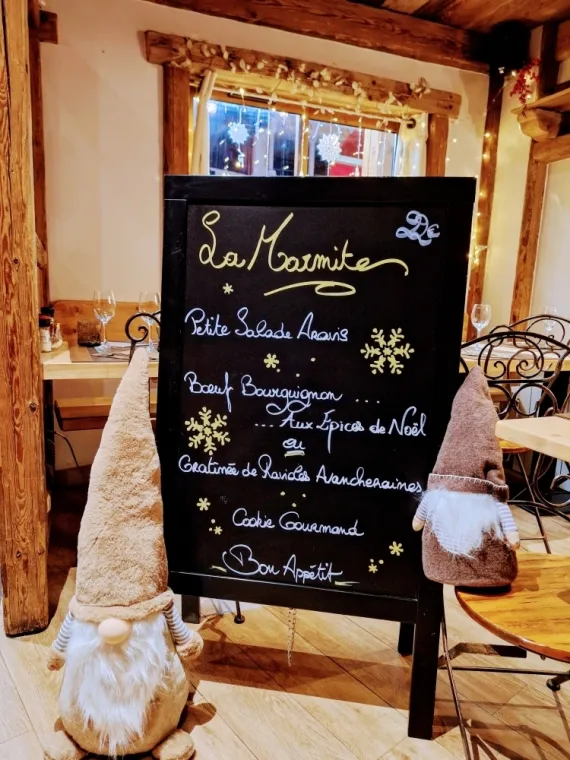 De
La Marmite
Petite Salade Aravis
Bœuf Bourguignon ...
... Aux Épices de Noël
ou
Gratinée de Ravioles
Cookie Gourmand
Bon Appétit